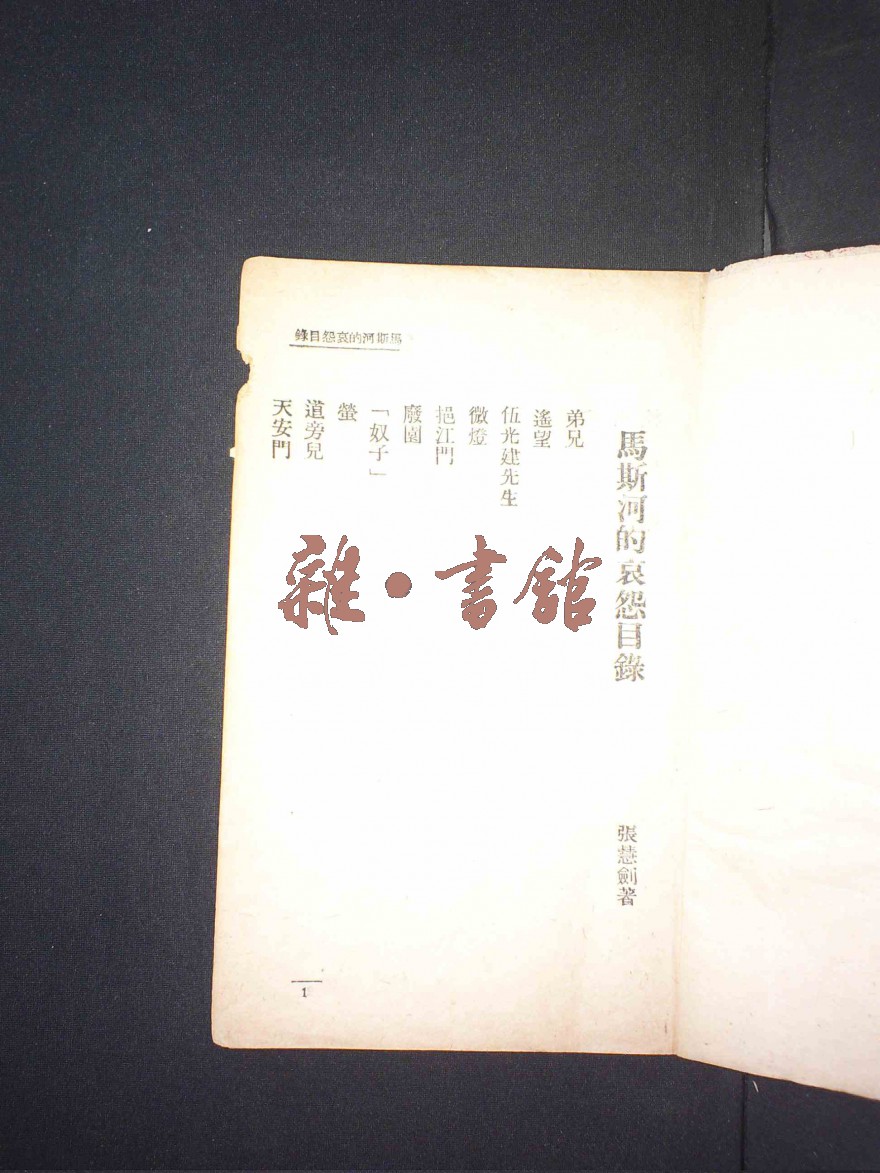 錄目怨哀的河斯馬
馬斯河的哀怨目錄
張慧劍著
弟兄
遙望
伍光建先生
微燈
挹江門
廢園
「奴子」
螢
道旁兒
天安門
雜・書館
1